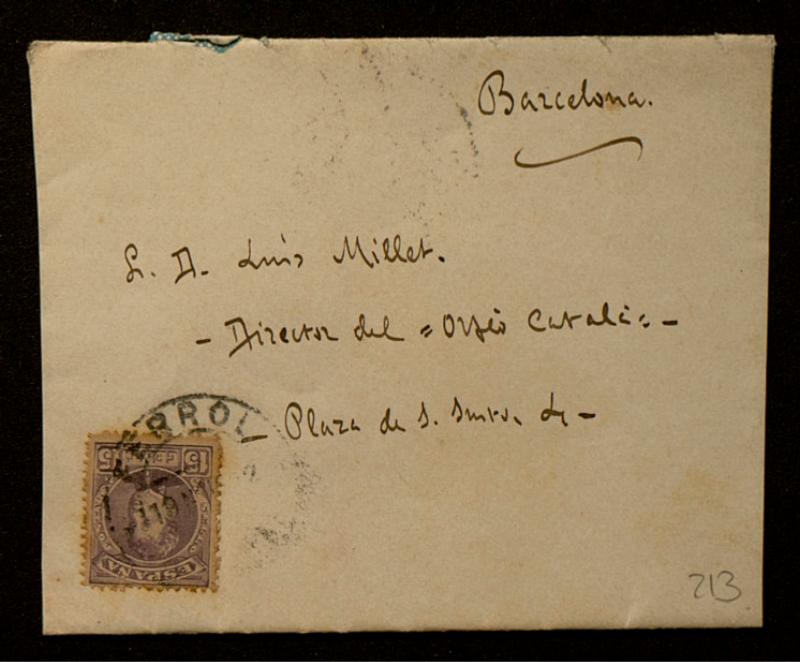 Barcelona.
S. D. Luis Millet.
- Director del "Orfeó Catalá" -
- Plaza de S. 
FERROL
15 15
ESPAÑA
213